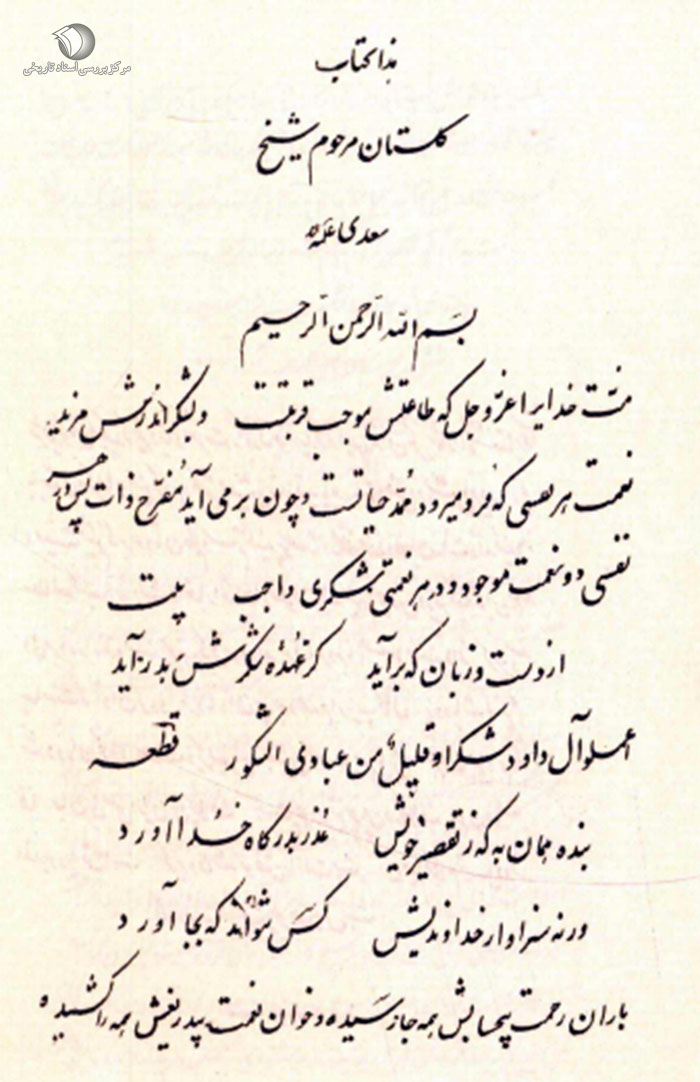 مرکز بررسی اسناد تاریخی
هذا کتاب
گلستان مرحوم شیخ
سعدی علیه
بسم الله الرحمن الرحیم
منت خدایرا عز و جل که طاعتش موجب قربتست و بشکر اندرش مزید
نعمت هر نفسی که فرو میرود ممد حیاتست و چون بر می آید مفرح ذات پس در هر
نفسی دو نعمت موجود و در هر نعمتی شکری واجب بیت
از دست و زبان که برآید کز عهده شکرش بدر آید
اعملوا آل داود شکرا و قلیل من عبادی الشکور قطعه
بنده همان به که ز تقصیر خویش عذر بدرگاه خدا آورد
ورنه سزاوار خداوندیش کس نتواند که بجا آورد
باران رحمت بیحسابش همه جا رسیده و خوان نعمت بیدریغش همه را کشیده